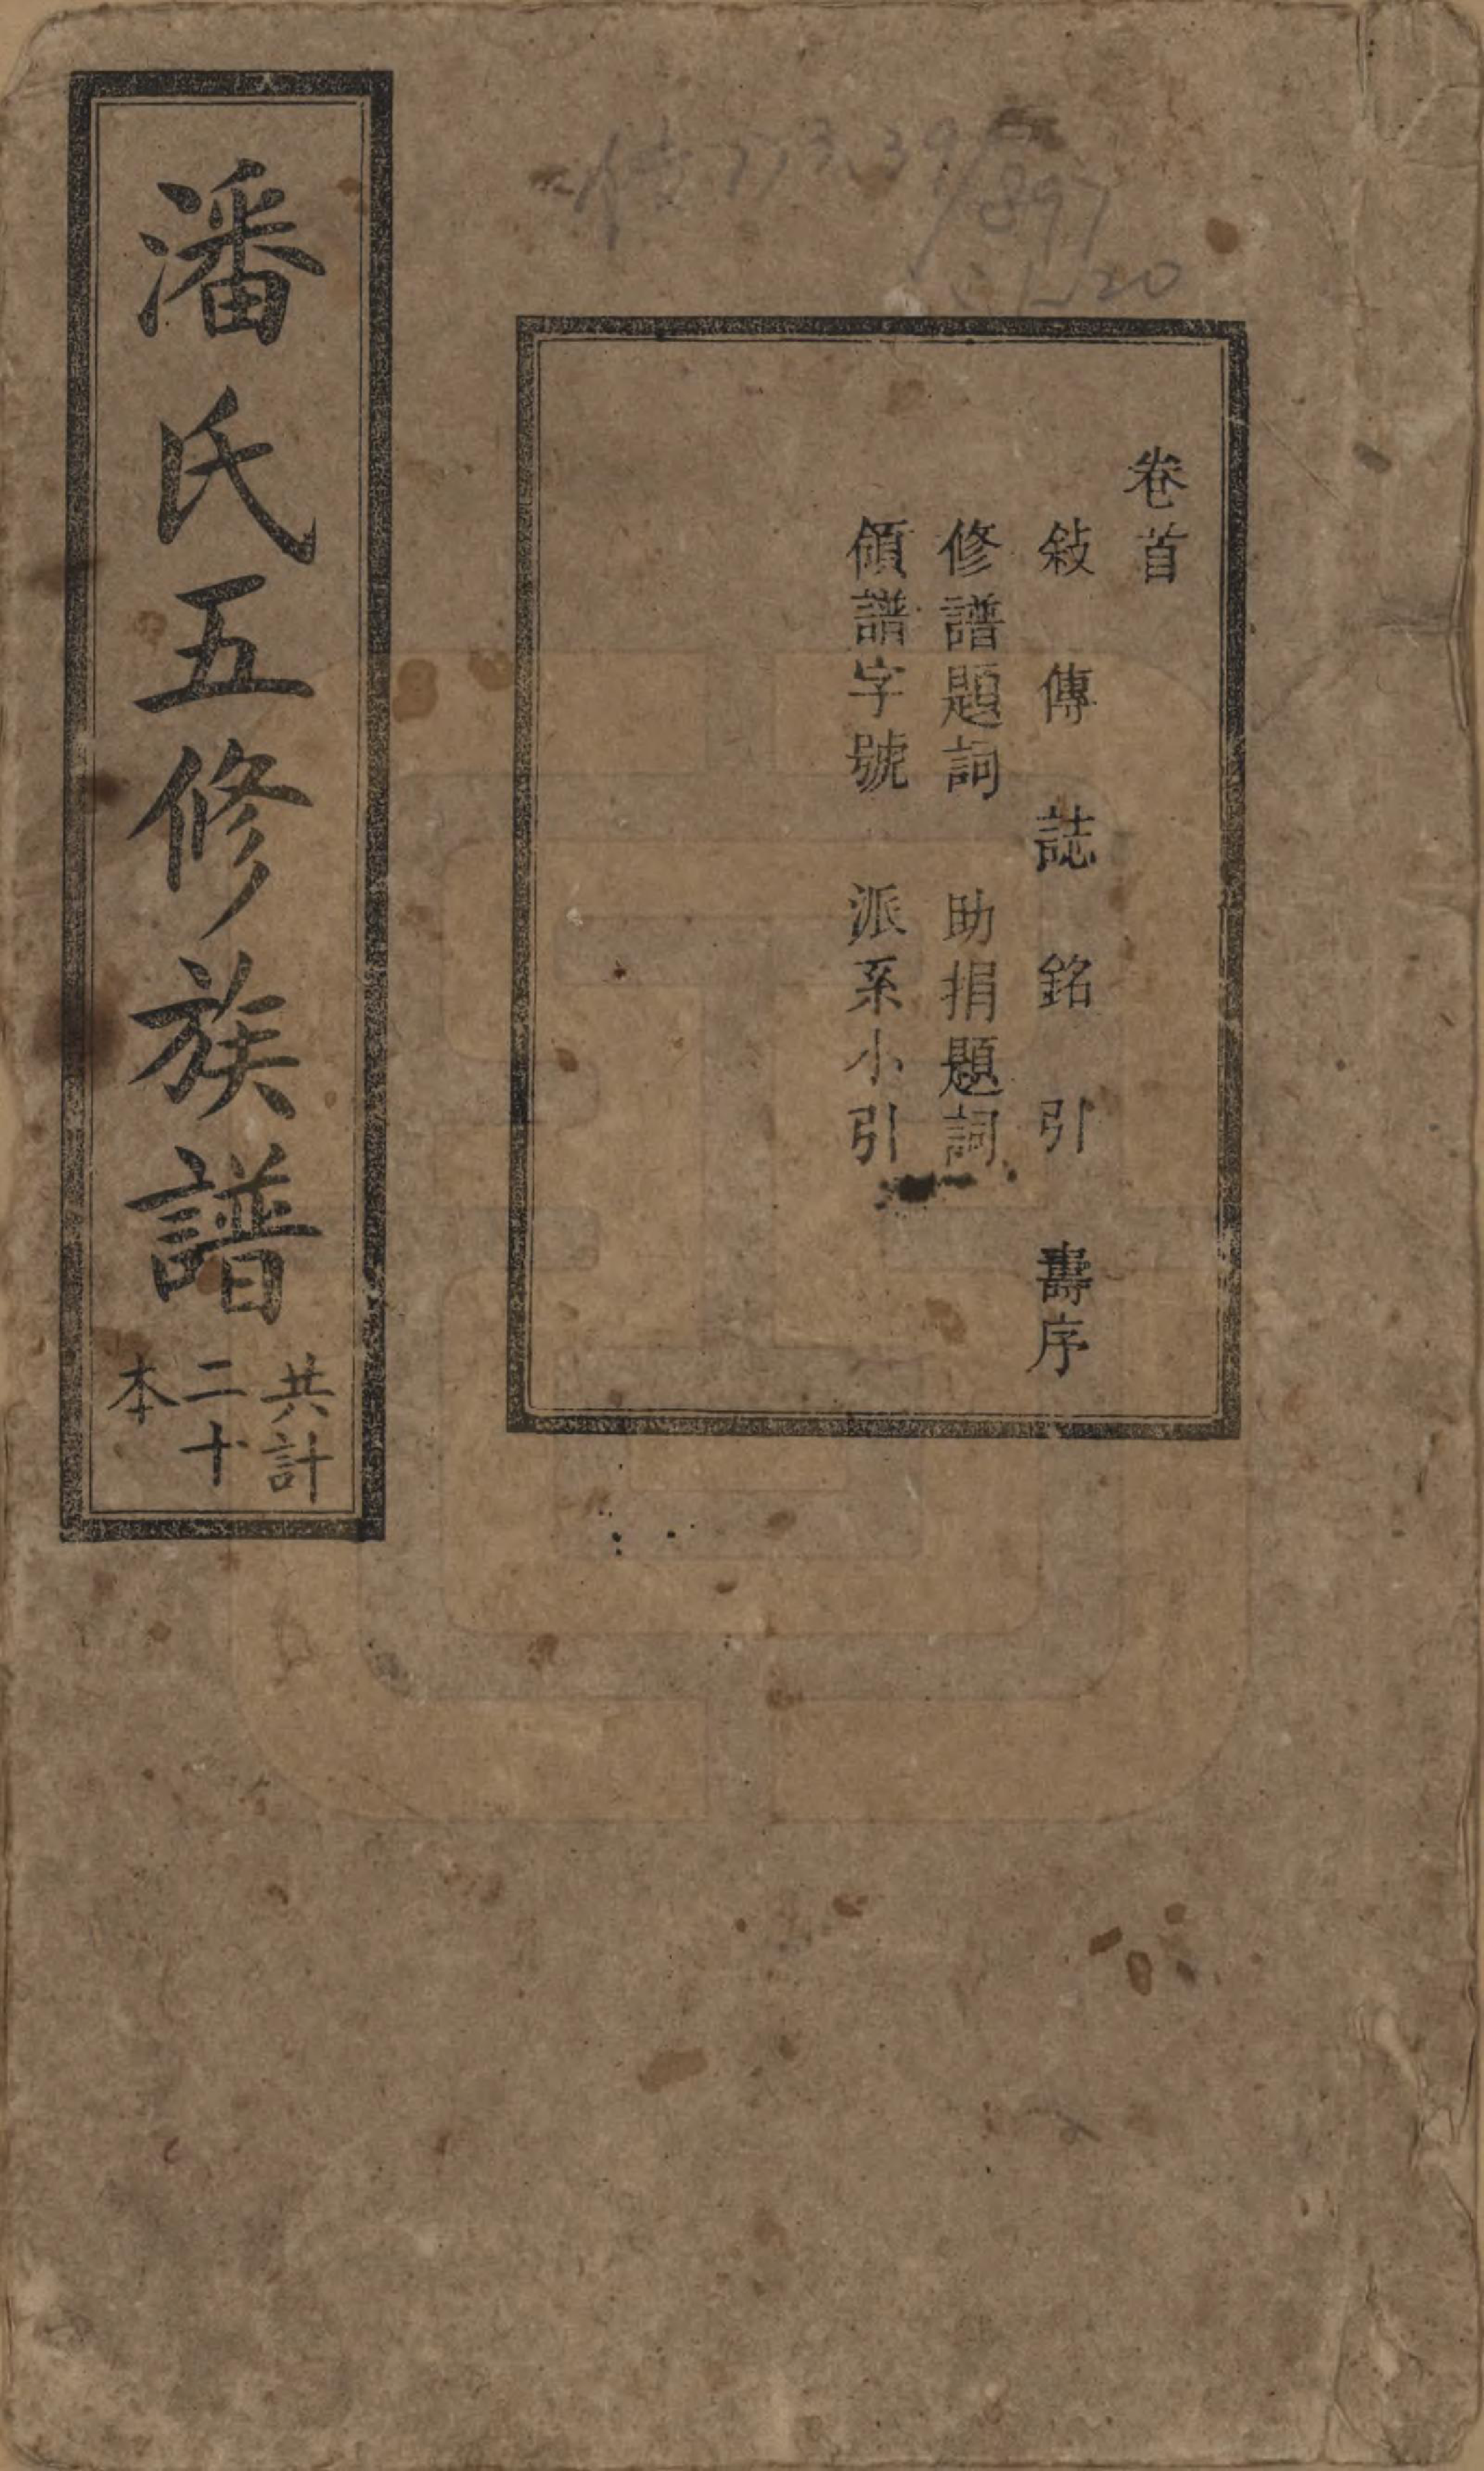 傳773.39/897
:1~20
卷首
敍 傳 誌 銘 引 壽序
修譜題詞 助捐題詞
領譜字號 派系小引
潘氏五修族譜
共計
二十
本